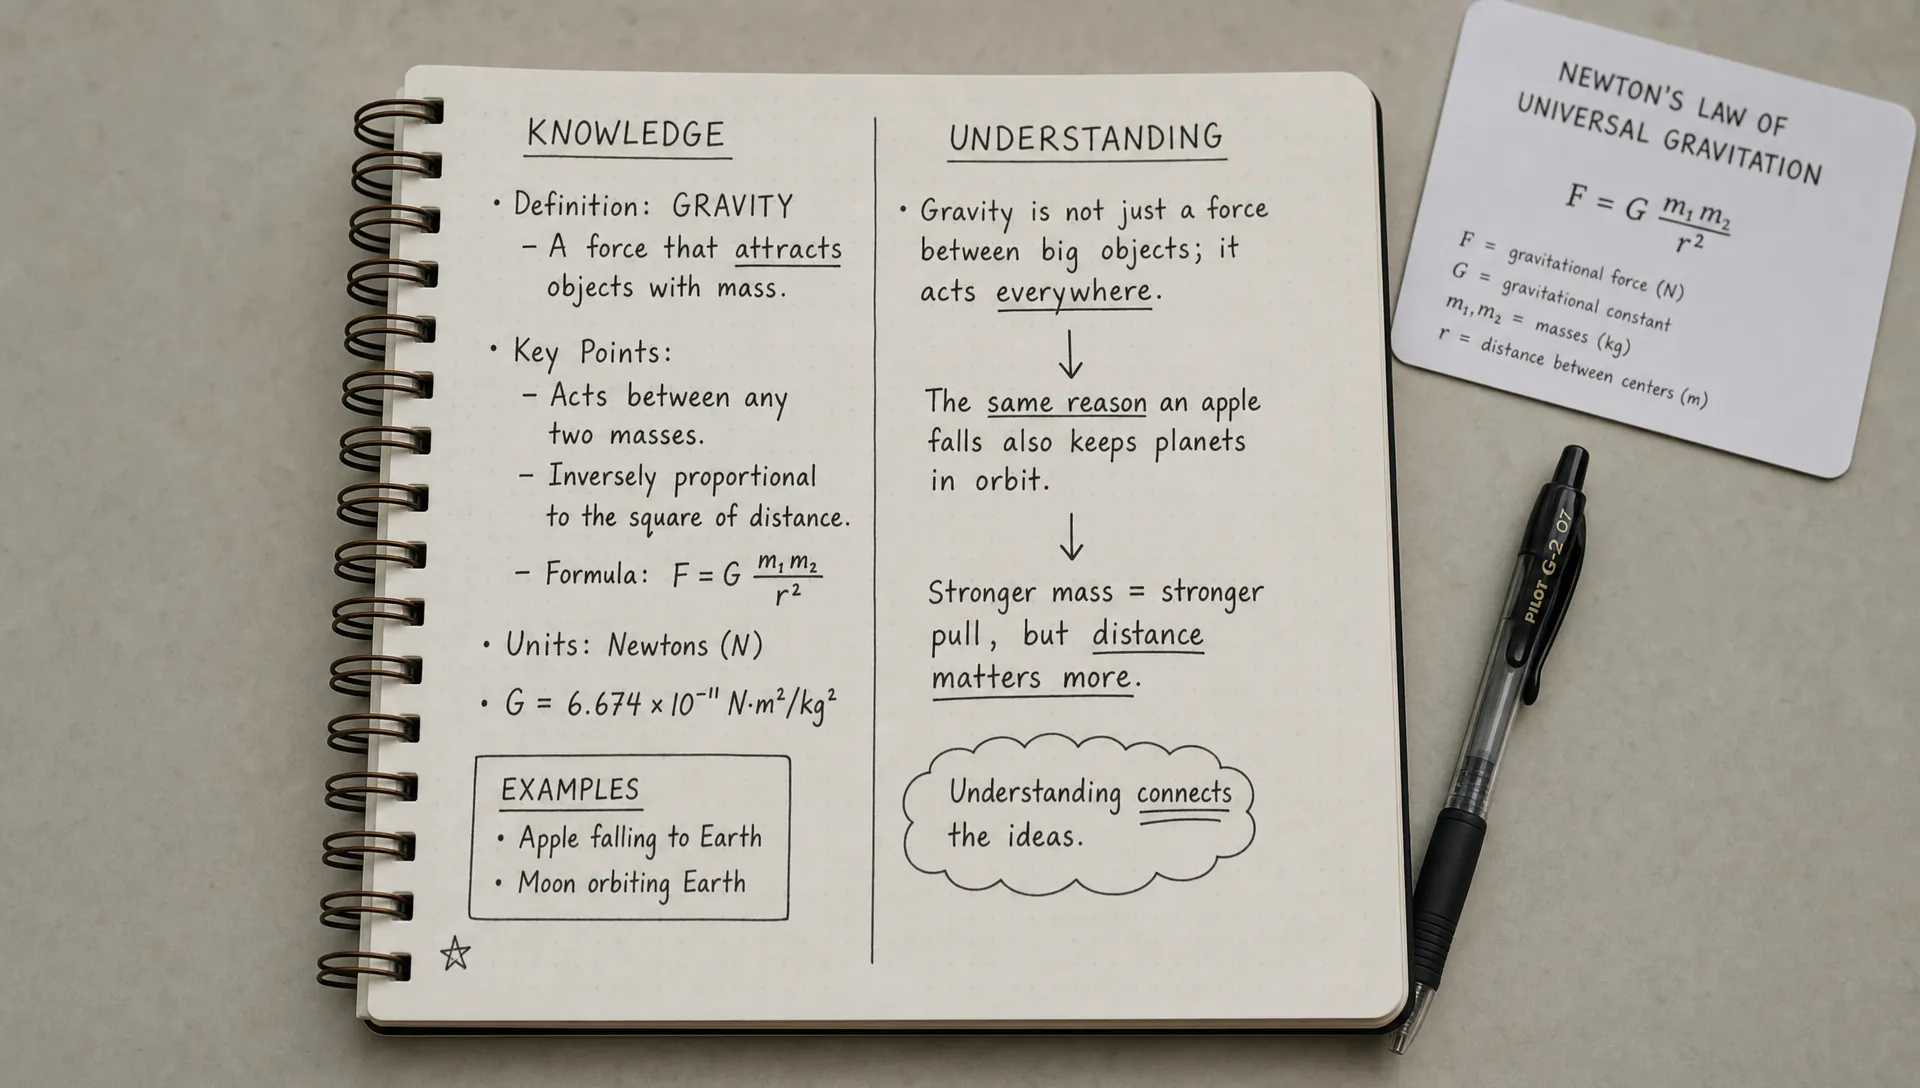 KNOWLEDGE
• Definition: GRAVITY
– A force that attracts
objects with mass.
• Key Points:
– Acts between any
two masses.
– Inversely proportional
to the square of distance.
– Formula: F = G m₁ m₂ / r²
• Units: Newtons (N)
• G = 6.674 × 10⁻¹¹ N·m²/kg²
EXAMPLES
• Apple falling to Earth
• Moon orbiting Earth
UNDERSTANDING
• Gravity is not just a force
between big objects; it
acts everywhere.
↓
The same reason an apple
falls also keeps planets
in orbit.
↓
Stronger mass = stronger
pull, but distance
matters more.
Understanding connects
the ideas.
NEWTON'S LAW OF
UNIVERSAL GRAVITATION
F = G m₁ m₂ / r²
F = gravitational force (N)
G = gravitational constant
m₁, m₂ = masses (kg)
r = distance between centers (m)
PILOT G-2 07